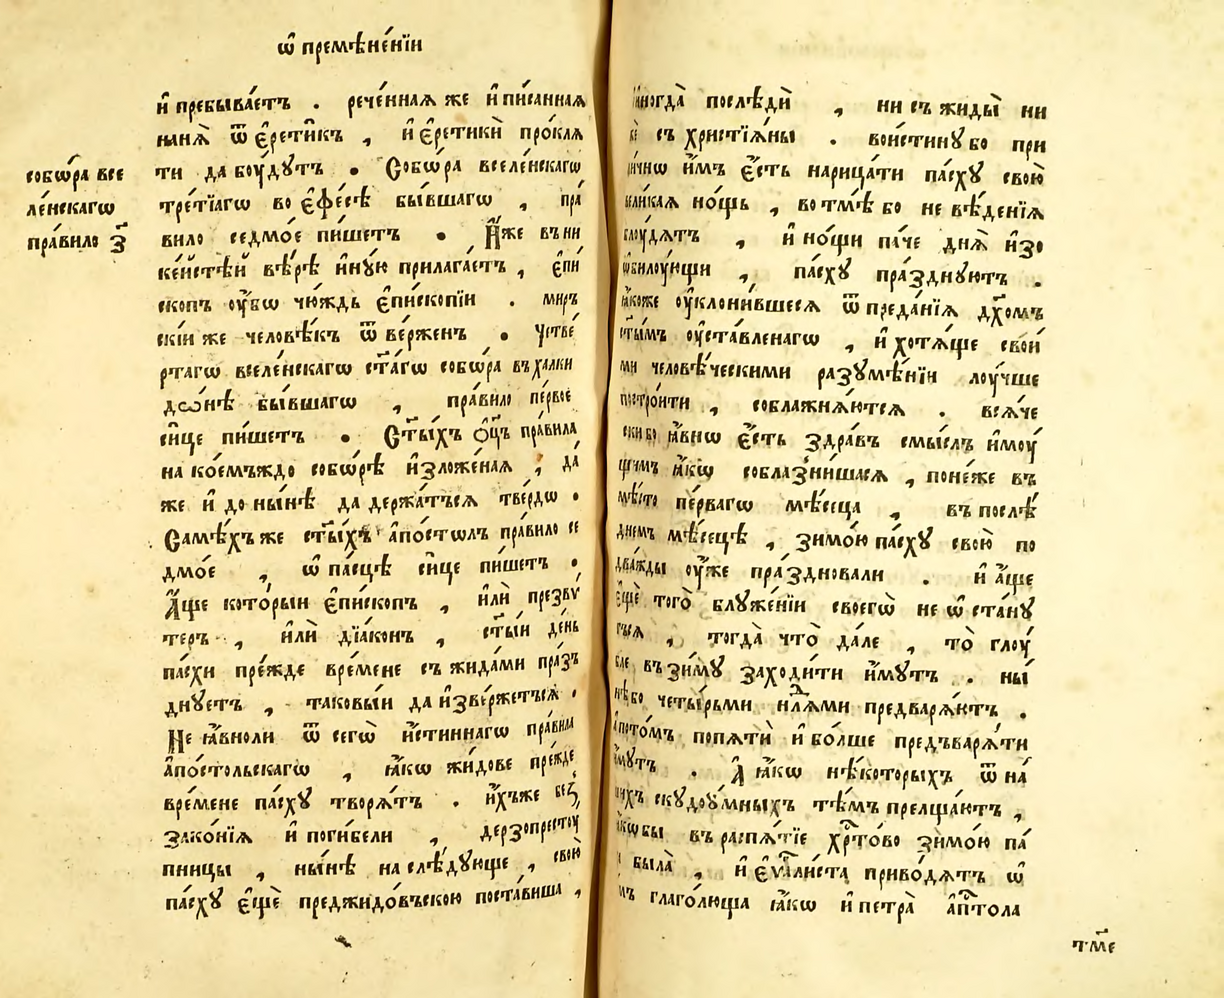 ѿ премѣне́нїи
и҆ пребыва́етъ . рече́ннаѧ же и҆ пи́саннаѧ
нанѧ̀ ѿ є҆рети̑къ , и҆ є҆ретикѝ про́клѧ
ти да боу́дутъ . Собѡ́ра вселе́нскагѡ
тре́тїагѡ во є҆фе́сѣ бы́вшагѡ , пра́
вило седмо́е пи́шетъ . И҆́же въ ни
ке́йстѣй вѣ́рѣ и҆́ную прилага́етъ , є҆пи́
скопъ оу҆́бѡ чю́ждь є҆пи́скопїи . мир́
скїи же человѣ́къ ѿве́рженъ . Четве́
ртагѡ вселе́нскагѡ ст҃а́гѡ собѡ́ра въ халки
до́нѣ бы́вшагѡ , пра́вило пе́рвое
си́це пи́шетъ . Ст҃ы́хъ ѻ҆ц҃ъ пра́вила
на ко́емъждо собѡ́рѣ и҆зложе́наѧ , да́
же и҆ до ны́нѣ да держа́тъсѧ тве́рдѡ .
Самѣ́хъ же ст҃ы́хъ а҆по́стѡлъ пра́вило се
дмо́е , ѡ҆ па́сцѣ си́це пи́шетъ .
А҆́ще кото́рыи є҆пи́скопъ , и҆лѝ презвѵ́
теръ , и҆лѝ дїа́конъ , ст҃ы́и де́нь
па́схи пре́жде вре́мене съ жида́ми пра́зъ
днуетъ , таковы́и да и҆зве́ржетъсѧ .
Не ꙗ҆́вноли ѿ сегѡ̀ и҆́стиннагѡ пра́вила
а҆по́стольскагѡ , ꙗ҆́кѡ жи́дове пре́жде
вре́мене па́сху творѧ́тъ . и҆́хъже без̾
зако́нїѧ и҆ поги́бели , дерзопрестоу́
пницы , ны́нѣ на слѣ́дующе , свою̀
па́сху є҆щѐ преджидо́въскою поста́виша ,
собѡ́ра все
ле́нскагѡ
пра́вило з҃
и҆ногда̀ послѣдѝ , ни съ жиды̀ ни
жѐ съ христїѧ́ны . вои́стину бо при
ли́чнѡ и҆̀мъ є҆́сть нарица́ти па́сху свою̀
вели́каѧ но́щь , во тмѣ̀ бо не вѣ́денїѧ
блоу́дѧтъ , и҆ но́щи па́че днѧ̀ и҆зо
ѡ҆билоу́ющи , па́сху пра́зднуютъ .
ꙗ҆́коже оу҆клони́вшесѧ ѿ преда́нїѧ дх҃омъ
ст҃ы́мъ оу҆ста́вленагѡ , и҆ хотѧ́ще свои́
ми человѣ́ческими разумѣ́нїи лоу́чше
постро́ити , соблажнѧ́ютсѧ . всѧ́че
ски бо ꙗ҆́внѡ є҆́сть здра́въ смы́слъ и҆моу́
щимъ ꙗ҆́кѡ соблазни́шасѧ , поне́же въ
мѣ́сто пе́рвагѡ мѣ́сеца , въ послѣ́
днемъ мѣ́сецѣ , зимо́ю па́сху свою̀ по
два́жды оу҆́же пра́здновали . и҆ а҆́ще
є҆щѐ того̀ блуже́нїи своегѡ̀ не ѡ҆ста́ну
тъсѧ , тогда̀ что̀ да́ле , то̀ глоу́
бле въ зи́му заходи́ти и҆́мутъ . ны́
нѣ бо четы́рьми нлⷣѧми предварѧ́ютъ .
а҆ пото́мъ попѧтѝ и҆ бо́лше предъварѧ́ти
и҆́мутъ . А҆ ꙗ҆́кѡ нѣ́которыхъ ѿ на́
шихъ скудоу́мныхъ тѣ́мъ прелща́ютъ ,
ꙗ҆́кѡбы въ распѧ́тїе хрⷭ҇то́во зимо́ю па́
была̀ , и҆ є҆ѵⷢ҇ли́ста приво́дѧтъ ѡ҆
глаго́люща ꙗ҆́кѡ и҆ петра̀ а҆пⷭ҇тола
тмⷨе